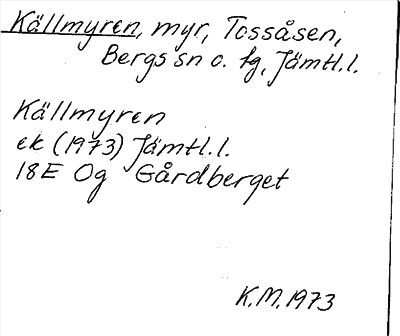 Källmyren, myr, Tossåsen,
Bergs sn o. tg, Jämtl.l.
Källmyren
ek (1973) Jämtl.l.
18E 0g Gårdberget
K.M. 1973